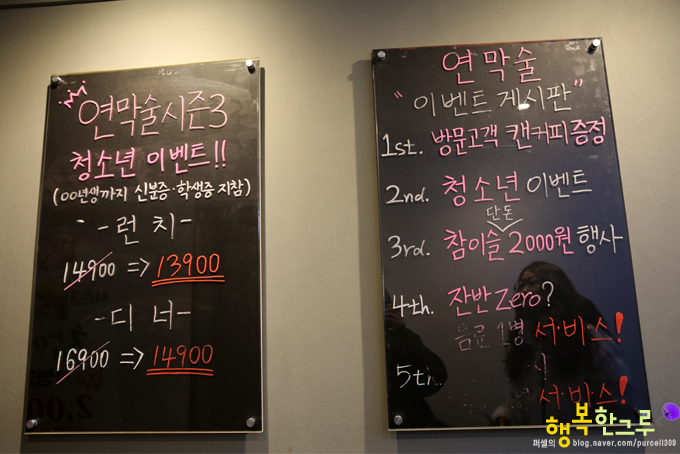 연막술시즌3
청소년 이벤트!!
(00년생까지 신분증·학생증 지참)
-런치-
14900 => 13900
-디너-
16900 => 14900
연막술
"이벤트 게시판"
1st. 방문고객 캔커피 증정
2nd. 청소년 이벤트
단돈
3rd. 참이슬 2000원 행사
4th. 잔반 Zero?
음료 1병 서·비·스!
서·비·스!
퍼셀의 행복한그루
blog.naver.com/purcell309